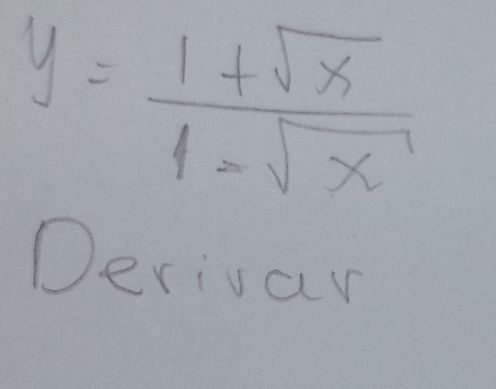 y = 1 + √x / 1 - √x
Derivar